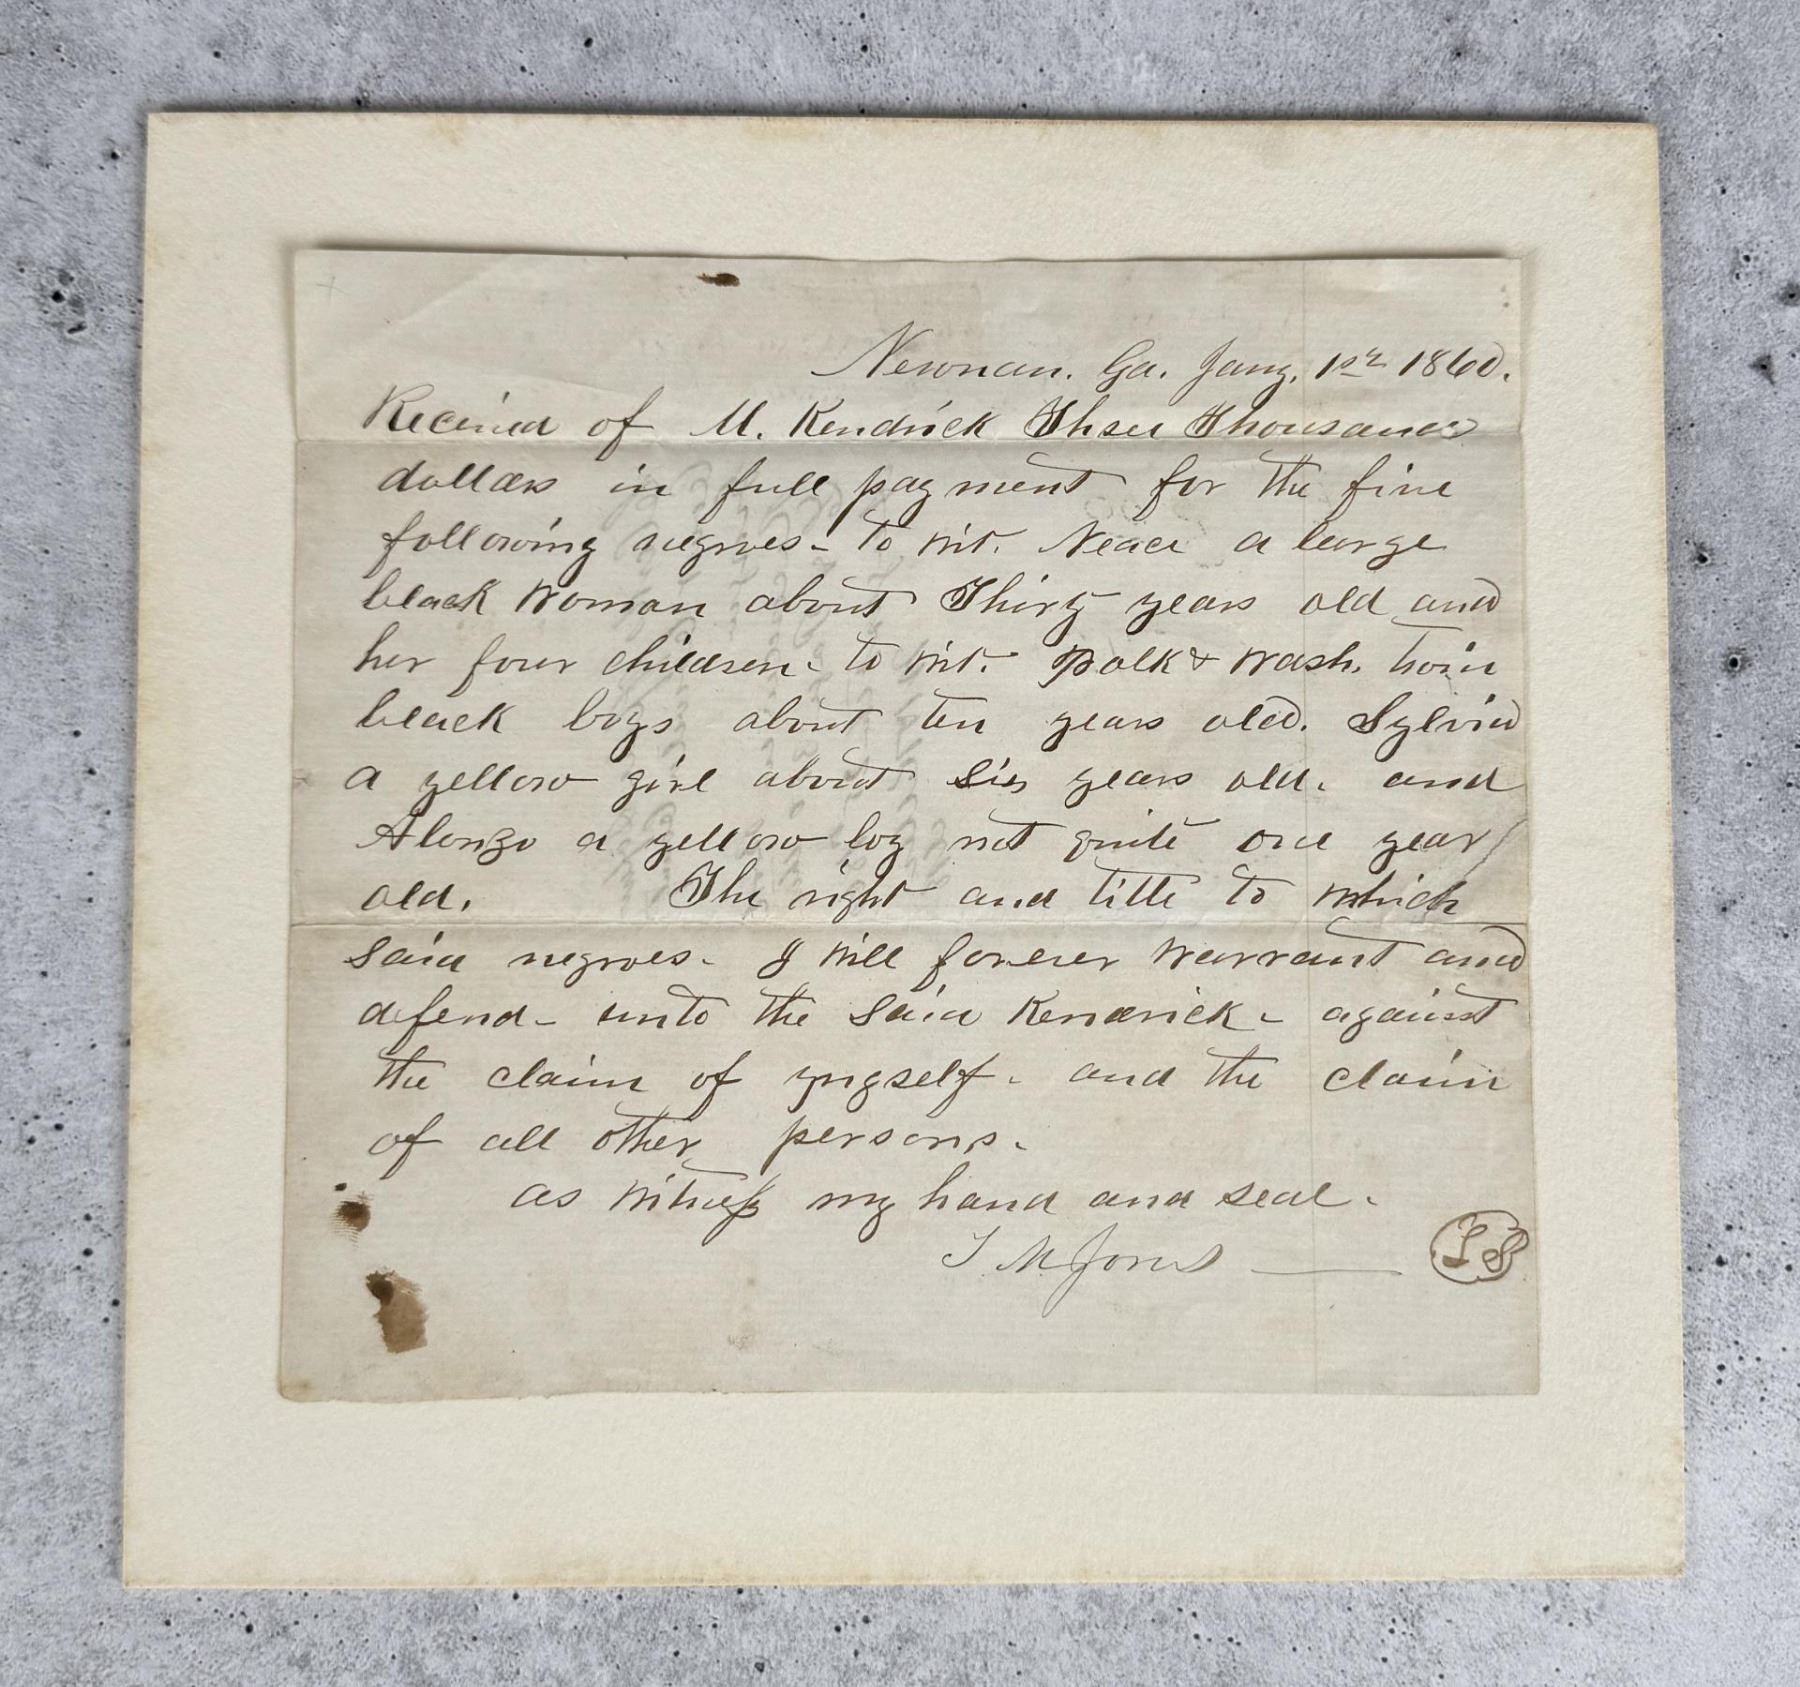 Newnan. Ga. Jany. 1st 1860.
Received of M. Kendrick Three Thousand
dollars in full payment for the five
following negroes - to wit. a large
black woman about Thirty years old and
her four children - to wit. Polk & Wash. twin
black boys about ten years old. Sylvia
a yellow girl about six years old. and
Alonzo a yellow boy not quite one year
old. The right and title to which
said negroes - I will forever warrant and
defend - unto the said Kendrick - against
the claim of myself - and the claim
of all other persons -
as witness my hand and seal -
J M Jones
LS